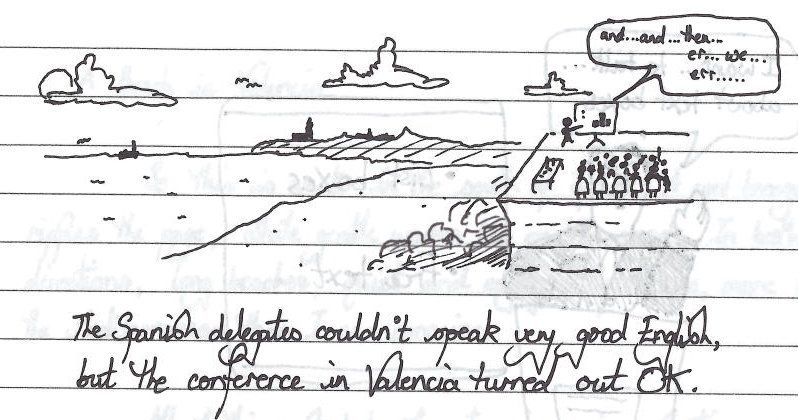 and...and...then...
er... we...
err.....
The Spanish delegates couldn't speak very good English,
but the conference in Valencia turned out OK.